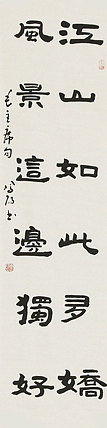 江山如此多嬌
風景這邊獨好
毛主席句